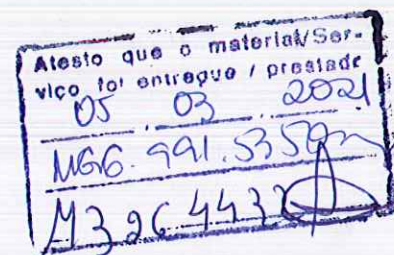 Atesto que o material/Ser-
viço foi entregue / prestado
05 . 03 . 2021
MG6.991.535
M3264437